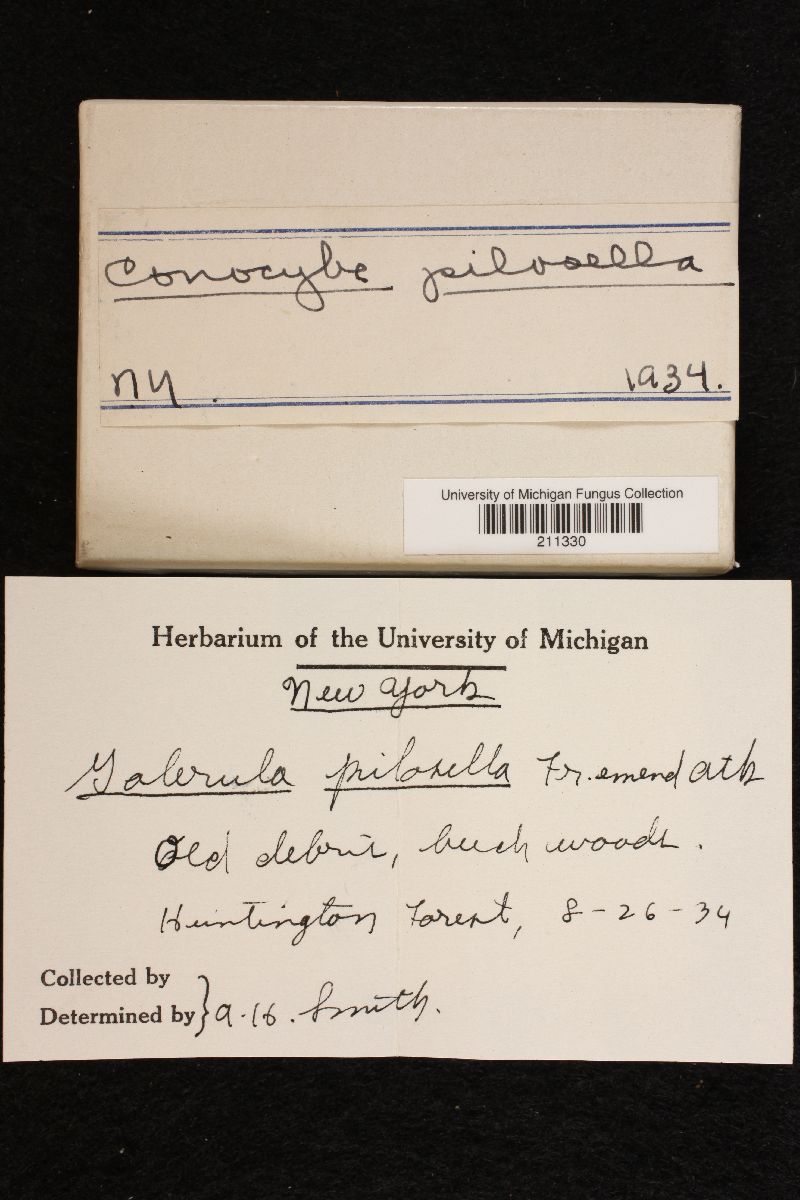 Conocybe pilosella
NY. 1934.
University of Michigan Fungus Collection
211330
Herbarium of the University of Michigan
New York
Galerula pilosella Fr. emend Atk
Old debris, beech woods.
Huntington Forest, 8-26-34
Collected by
Determined by } A.H. Smith.